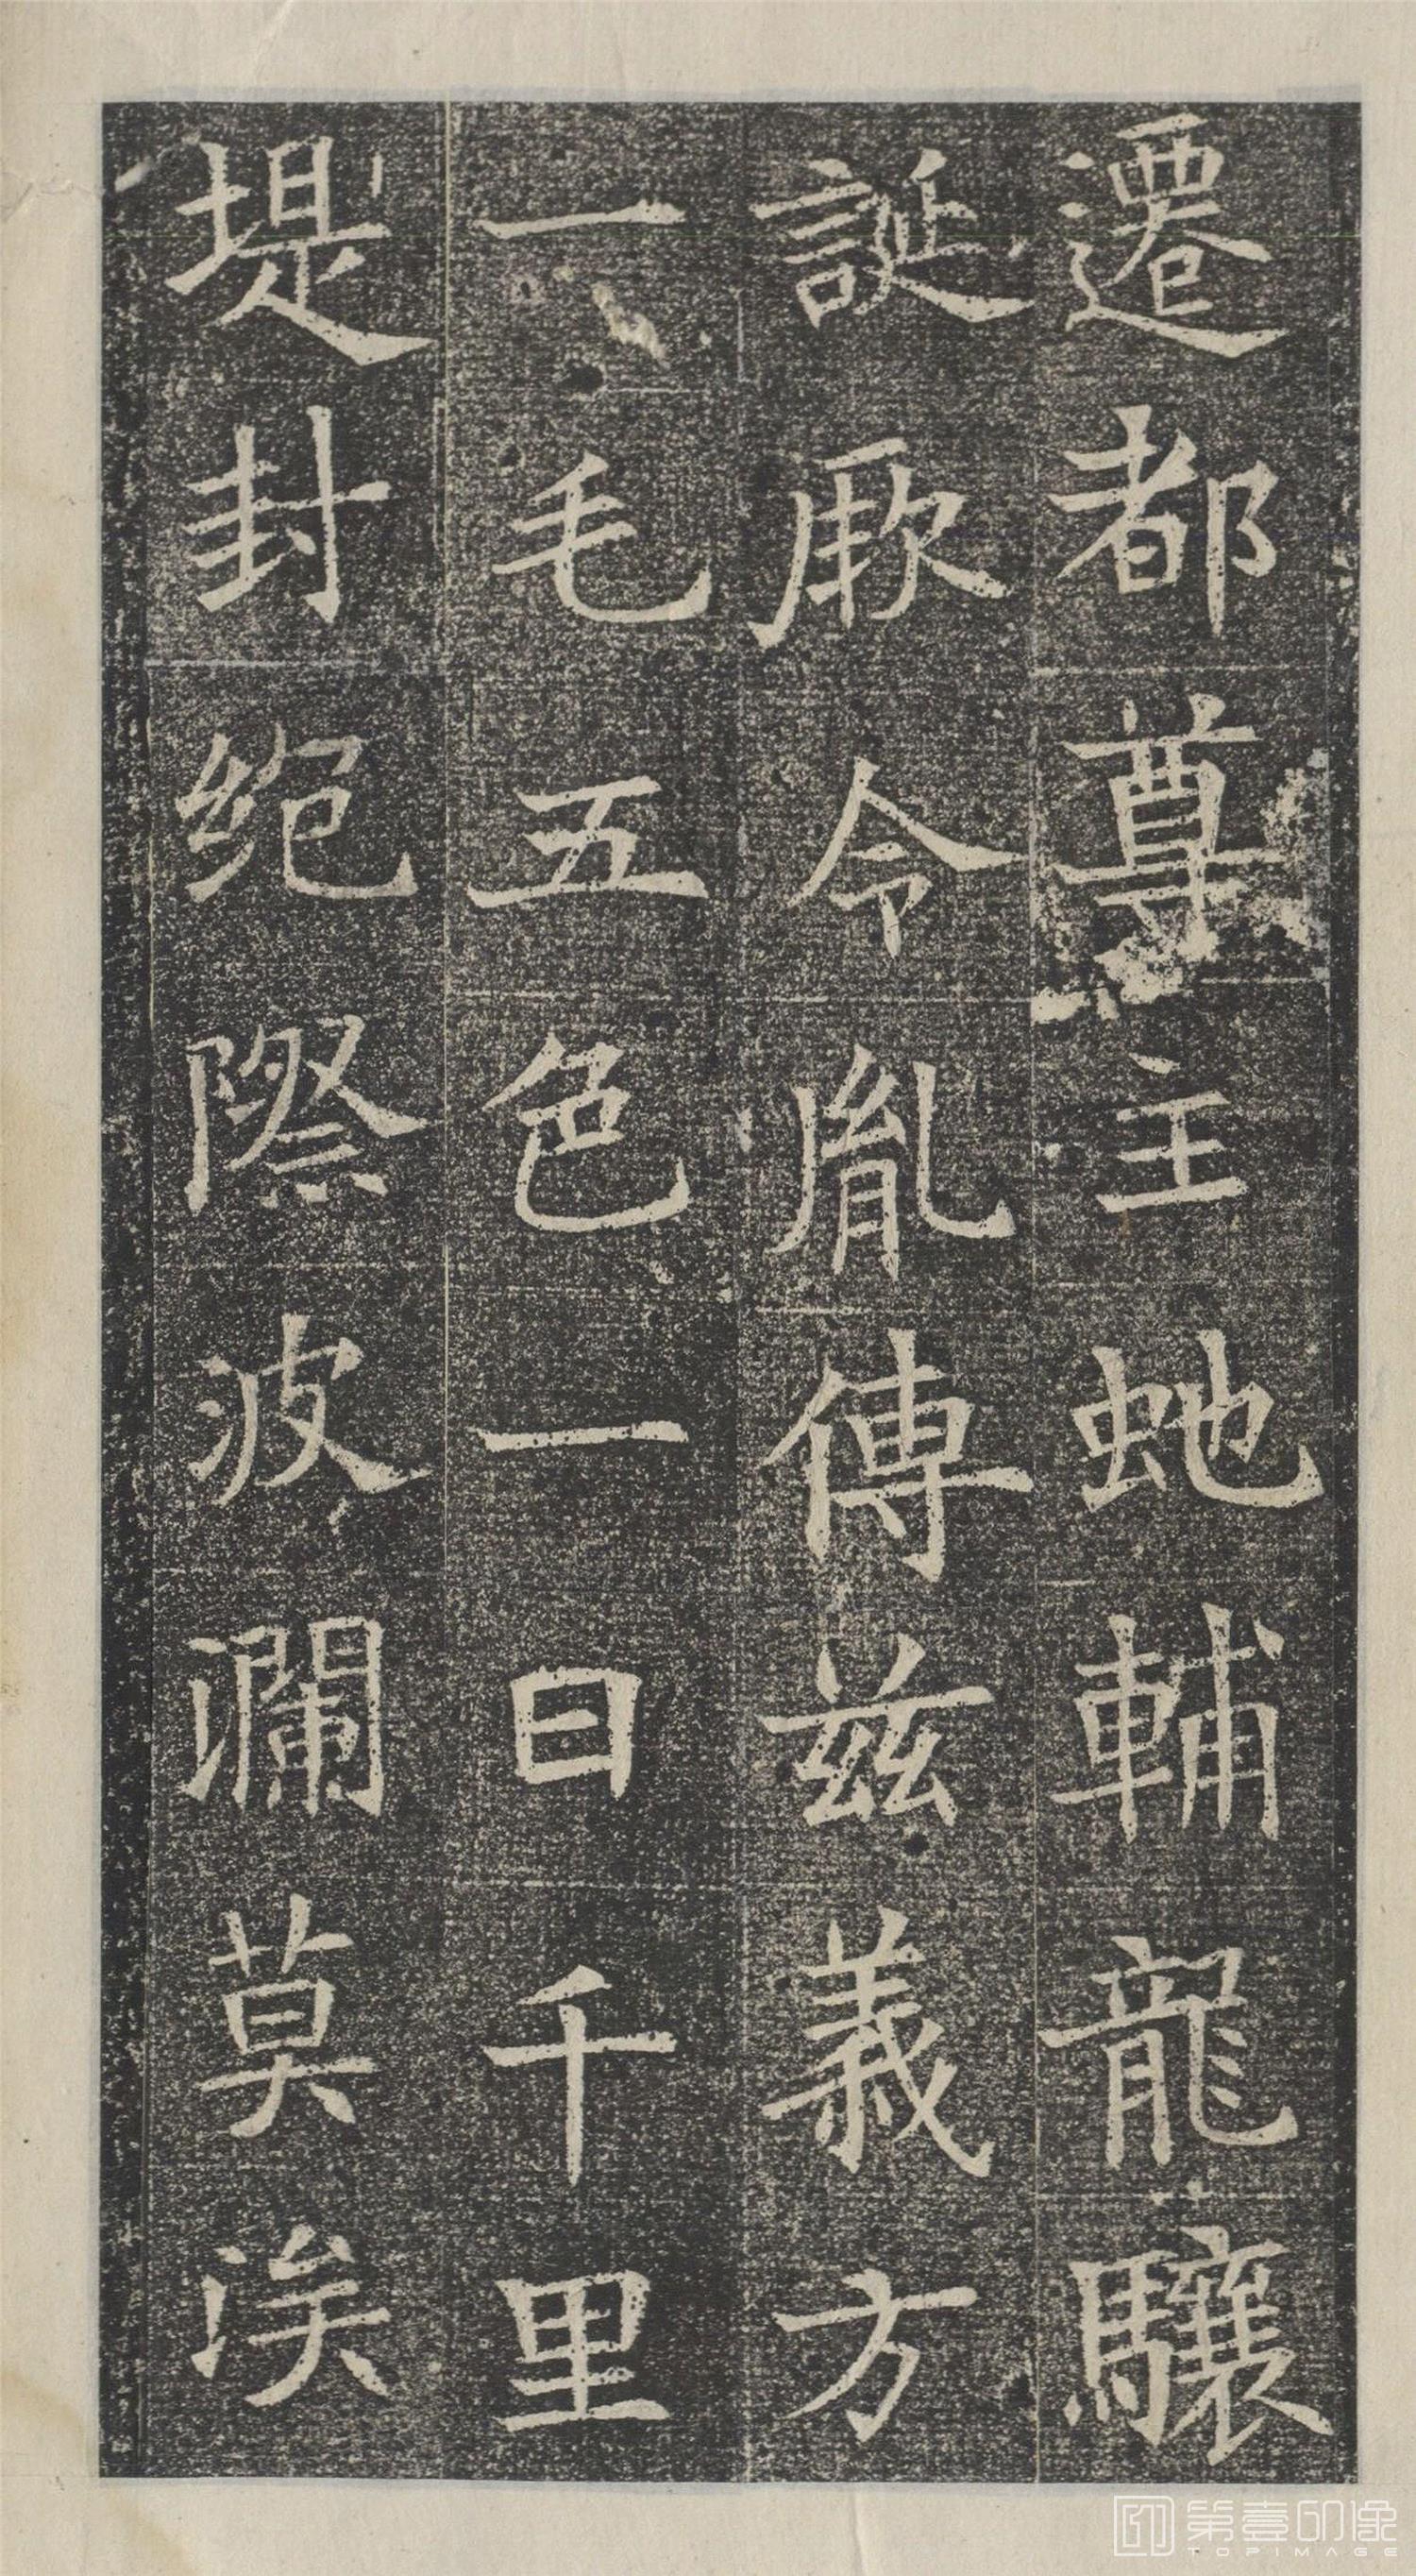 遷都尊主虵輔龍驤
誕厥令胤傳茲義方
一毛五色一日千里
堤封絕際波瀾莫涘
第壹印像
TOPIMAGE